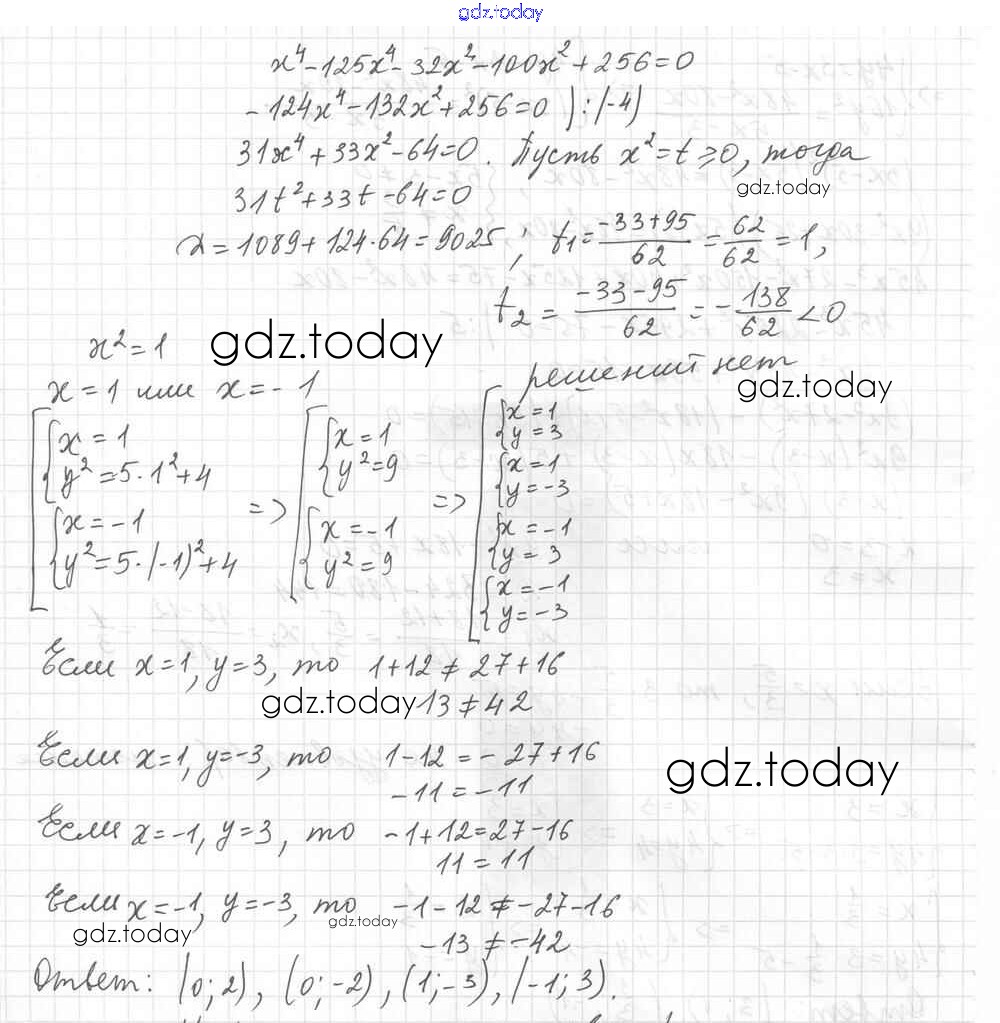 gdz.today
x⁴-125x⁴-32x²-100x²+256=0
-124x⁴-132x²+256=0 ):(-4)
31x⁴+33x²-64=0. Пусть x²=t≥0, тогда
gdz.today
31t²+33t-64=0
D=1089+124·64=9025; t₁=(-33+95)/62=62/62=1,
t₂=(-33-95)/62=-138/62<0
x²=1 gdz.today
решений нет
x=1 или x=-1
gdz.today
[{x=1 => [{x=1 => [{x=1
y²=5·1²+4 y²=9 y=3
{x=1
y=-3
{x=-1 {x=-1 {x=-1
y²=5·(-1)²+4 y²=9 y=3
{x=-1
y=-3
Если x=1, y=3, то 1+12≠27+16
gdz.today 13≠42
Если x=1, y=-3, то 1-12=-27+16
gdz.today
-11=-11
Если x=-1, y=3, то -1+12=27-16
11=11
Если x=-1, y=-3, то -1-12≠-27-16
gdz.today
gdz.today
-13≠-42
Ответ: (0;2), (0;-2), (1;-3), (-1;3).